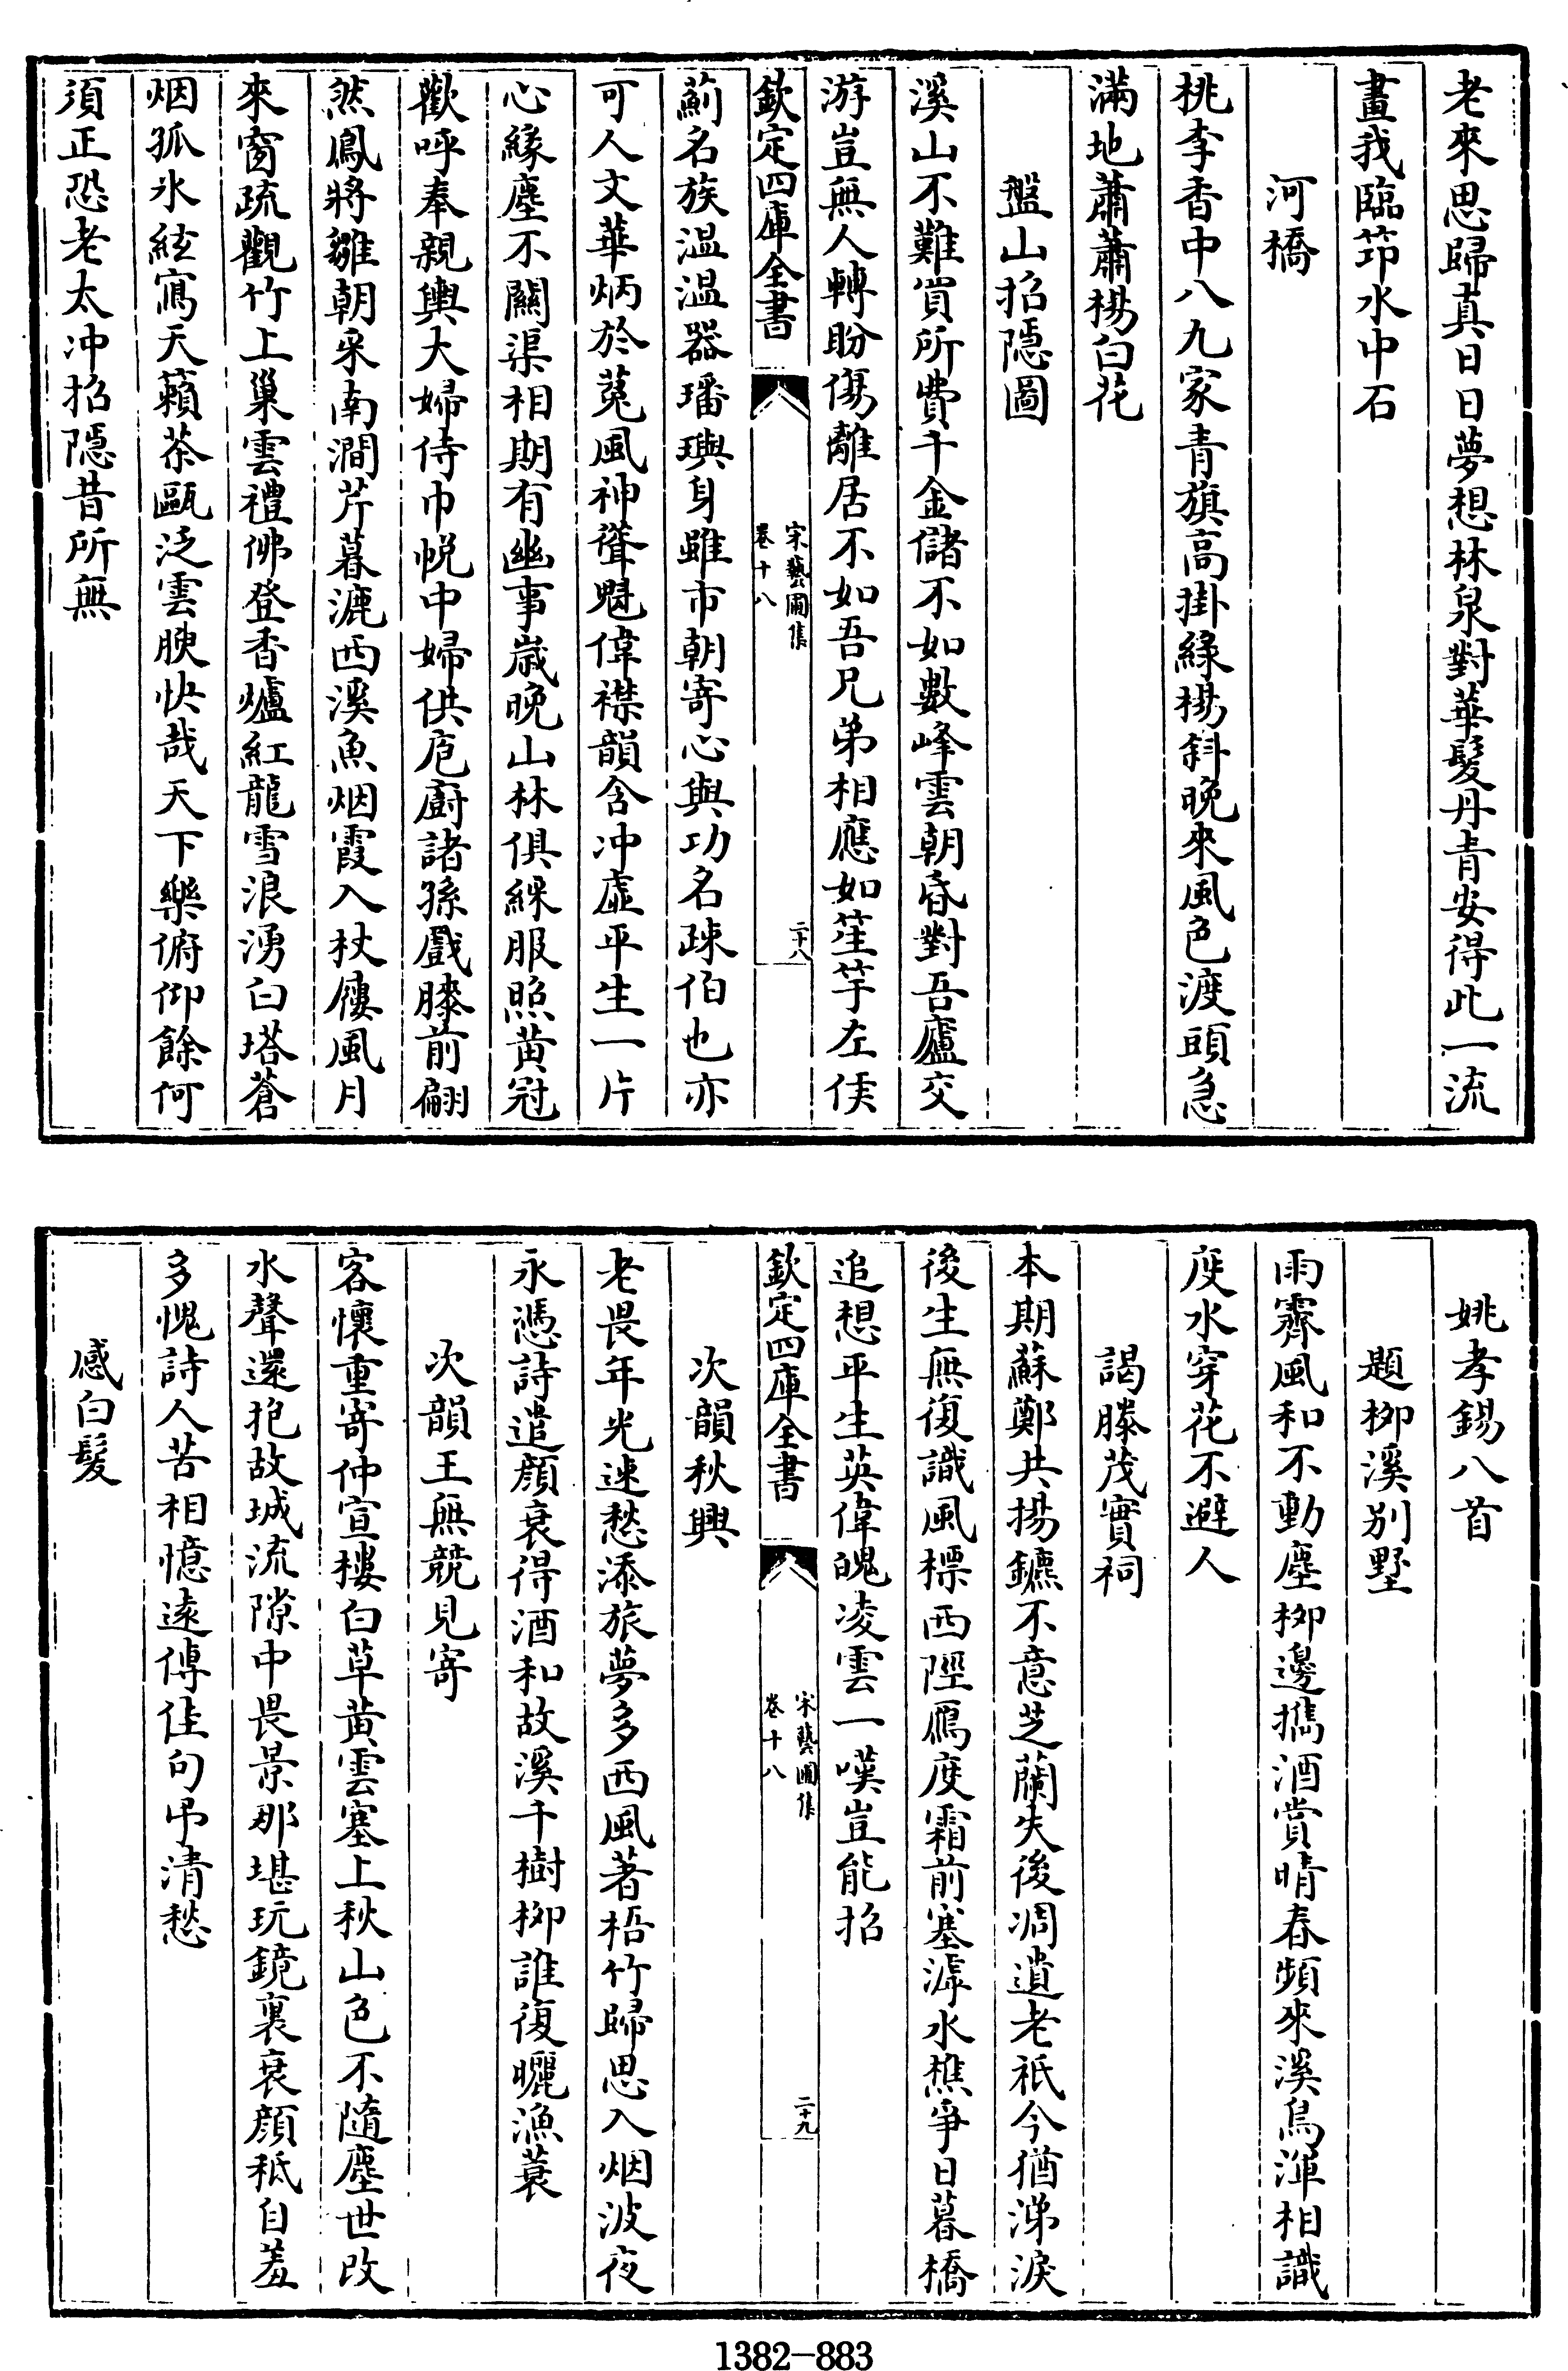 老來思歸真日日夢想林泉對華髮丹青安得此一流
畫我臨笻水中石
河橋
桃李香中八九家青旗高掛綠楊斜晚來風色渡頭急
滿地蕭蕭楊白花
盤山招隱圖
溪山不難買所費千金儲不如數峰雲朝昏對吾廬交
游豈無人轉盼傷離居不如吾兄弟相應如笙竽左侯
欽定四庫全書
宋藝圃集
卷十八
二十八
薊名族溫溫器璠璵身雖市朝寄心與功名疎伯也亦
可人文華炳於菟風神聳魁偉襟韻含冲虛平生一片
心緣塵不關渠相期有幽事歲晚山林俱綵服照黃冠
歡呼奉親輿大婦侍巾帨中婦供庖廚諸孫戲膝前翩
然鳳將雛朝采南澗芹暮漉西溪魚烟霞入杖屨風月
來窗疏觀竹上巢雲禮佛登香爐紅龍雪浪湧白塔蒼
烟孤氷絃寫天籟茶甌泛雲腴快哉天下樂俯仰餘何
須正恐老太冲招隱昔所無
姚孝錫八首
題栁溪别墅
雨霽風和不動塵栁邊攜酒賞晴春頻來溪鳥渾相識
度水穿花不避人
謁滕茂實祠
本期蘇鄭共揚鑣不意芝蘭失後凋遺老祇今猶涕淚
後生無復識風標西陘鴈度霜前塞滹水樵爭日暮橋
追想平生英偉魄凌雲一嘆豈能招
欽定四庫全書
宋藝圃集
卷十八
二十九
次韻秋興
老畏年光速愁添旅夢多西風著梧竹歸思入烟波夜
永憑詩遣顔衰得酒和故溪千樹栁誰復曬漁蓑
次韻王無競見寄
客懷重寄仲宣樓白草黃雲塞上秋山色不隨塵世改
水聲還抱故城流隙中畏景那堪玩鏡裏衰顔秪自羞
多愧詩人苦相憶遠傳佳句弔清愁
感白髮
1382-883